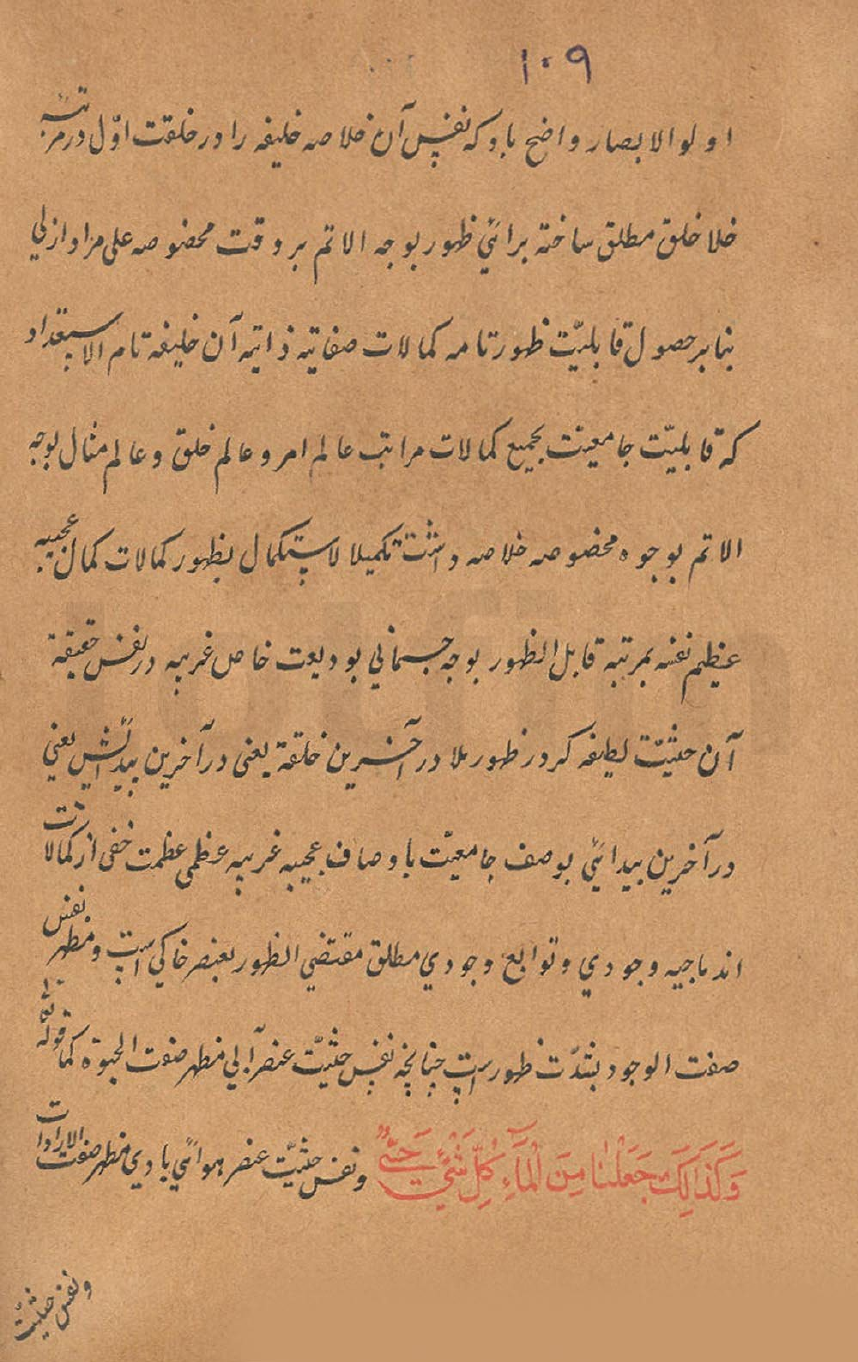 ۱۰۹
اولو الابصار واضح باد که نفس آن خلاصه خلیفه را در خلقت اوّل در مرتبه
خلا خلق مطلق ساخته برائی ظهور بوجه الاتم بر وقت مخصوصه علی مراد ازلی
بنا بر حصول قابلیّت ظهور تامه کمالات صفاتیه ذاتیه آن خلیفه تام الاستعداد
که قابلیّت جامعیت بجمیع کمالات مراتب عالم امر و عالم خلق و عالم مثال بوجه
الاتم بوجوه مخصوصه خلاصه داشت تکمیلا لاستکمال بظهور کمالات کمال عجیبه
عظیم نفسه بمرتبه قابل الظهور بوجه جسمانی بودیعت خاص غریبه در نفس حقیقة
آن حثیّت لطیفه کرد ظهور بلا در آخرین خلقة یعنی در آخرین پیدائش یعنی
در آخرین پیدائی بوصف جامعیّت باوصاف عجیبه غریبه عظمی عظمت خفی از کمالات
اندماجیه وجودی و توابع وجودی مطلق مقتضی الظهور بعنصر خاکی است و مظهر نفس
صفت الوجود بشدّت ظهور است چنانچه نفس حثیّت عنصر آبی مظهر صفت الحیوة کما قوله تعالی
وَكَذَالِكَ جَعَلْنَا مِنَ الْمَآءِ كُلِّ شَيْئٍ حَيٍّ ونفس حثیّت عنصر هوائی بادی مظهر صفت الارادات
ونفس حثیّت